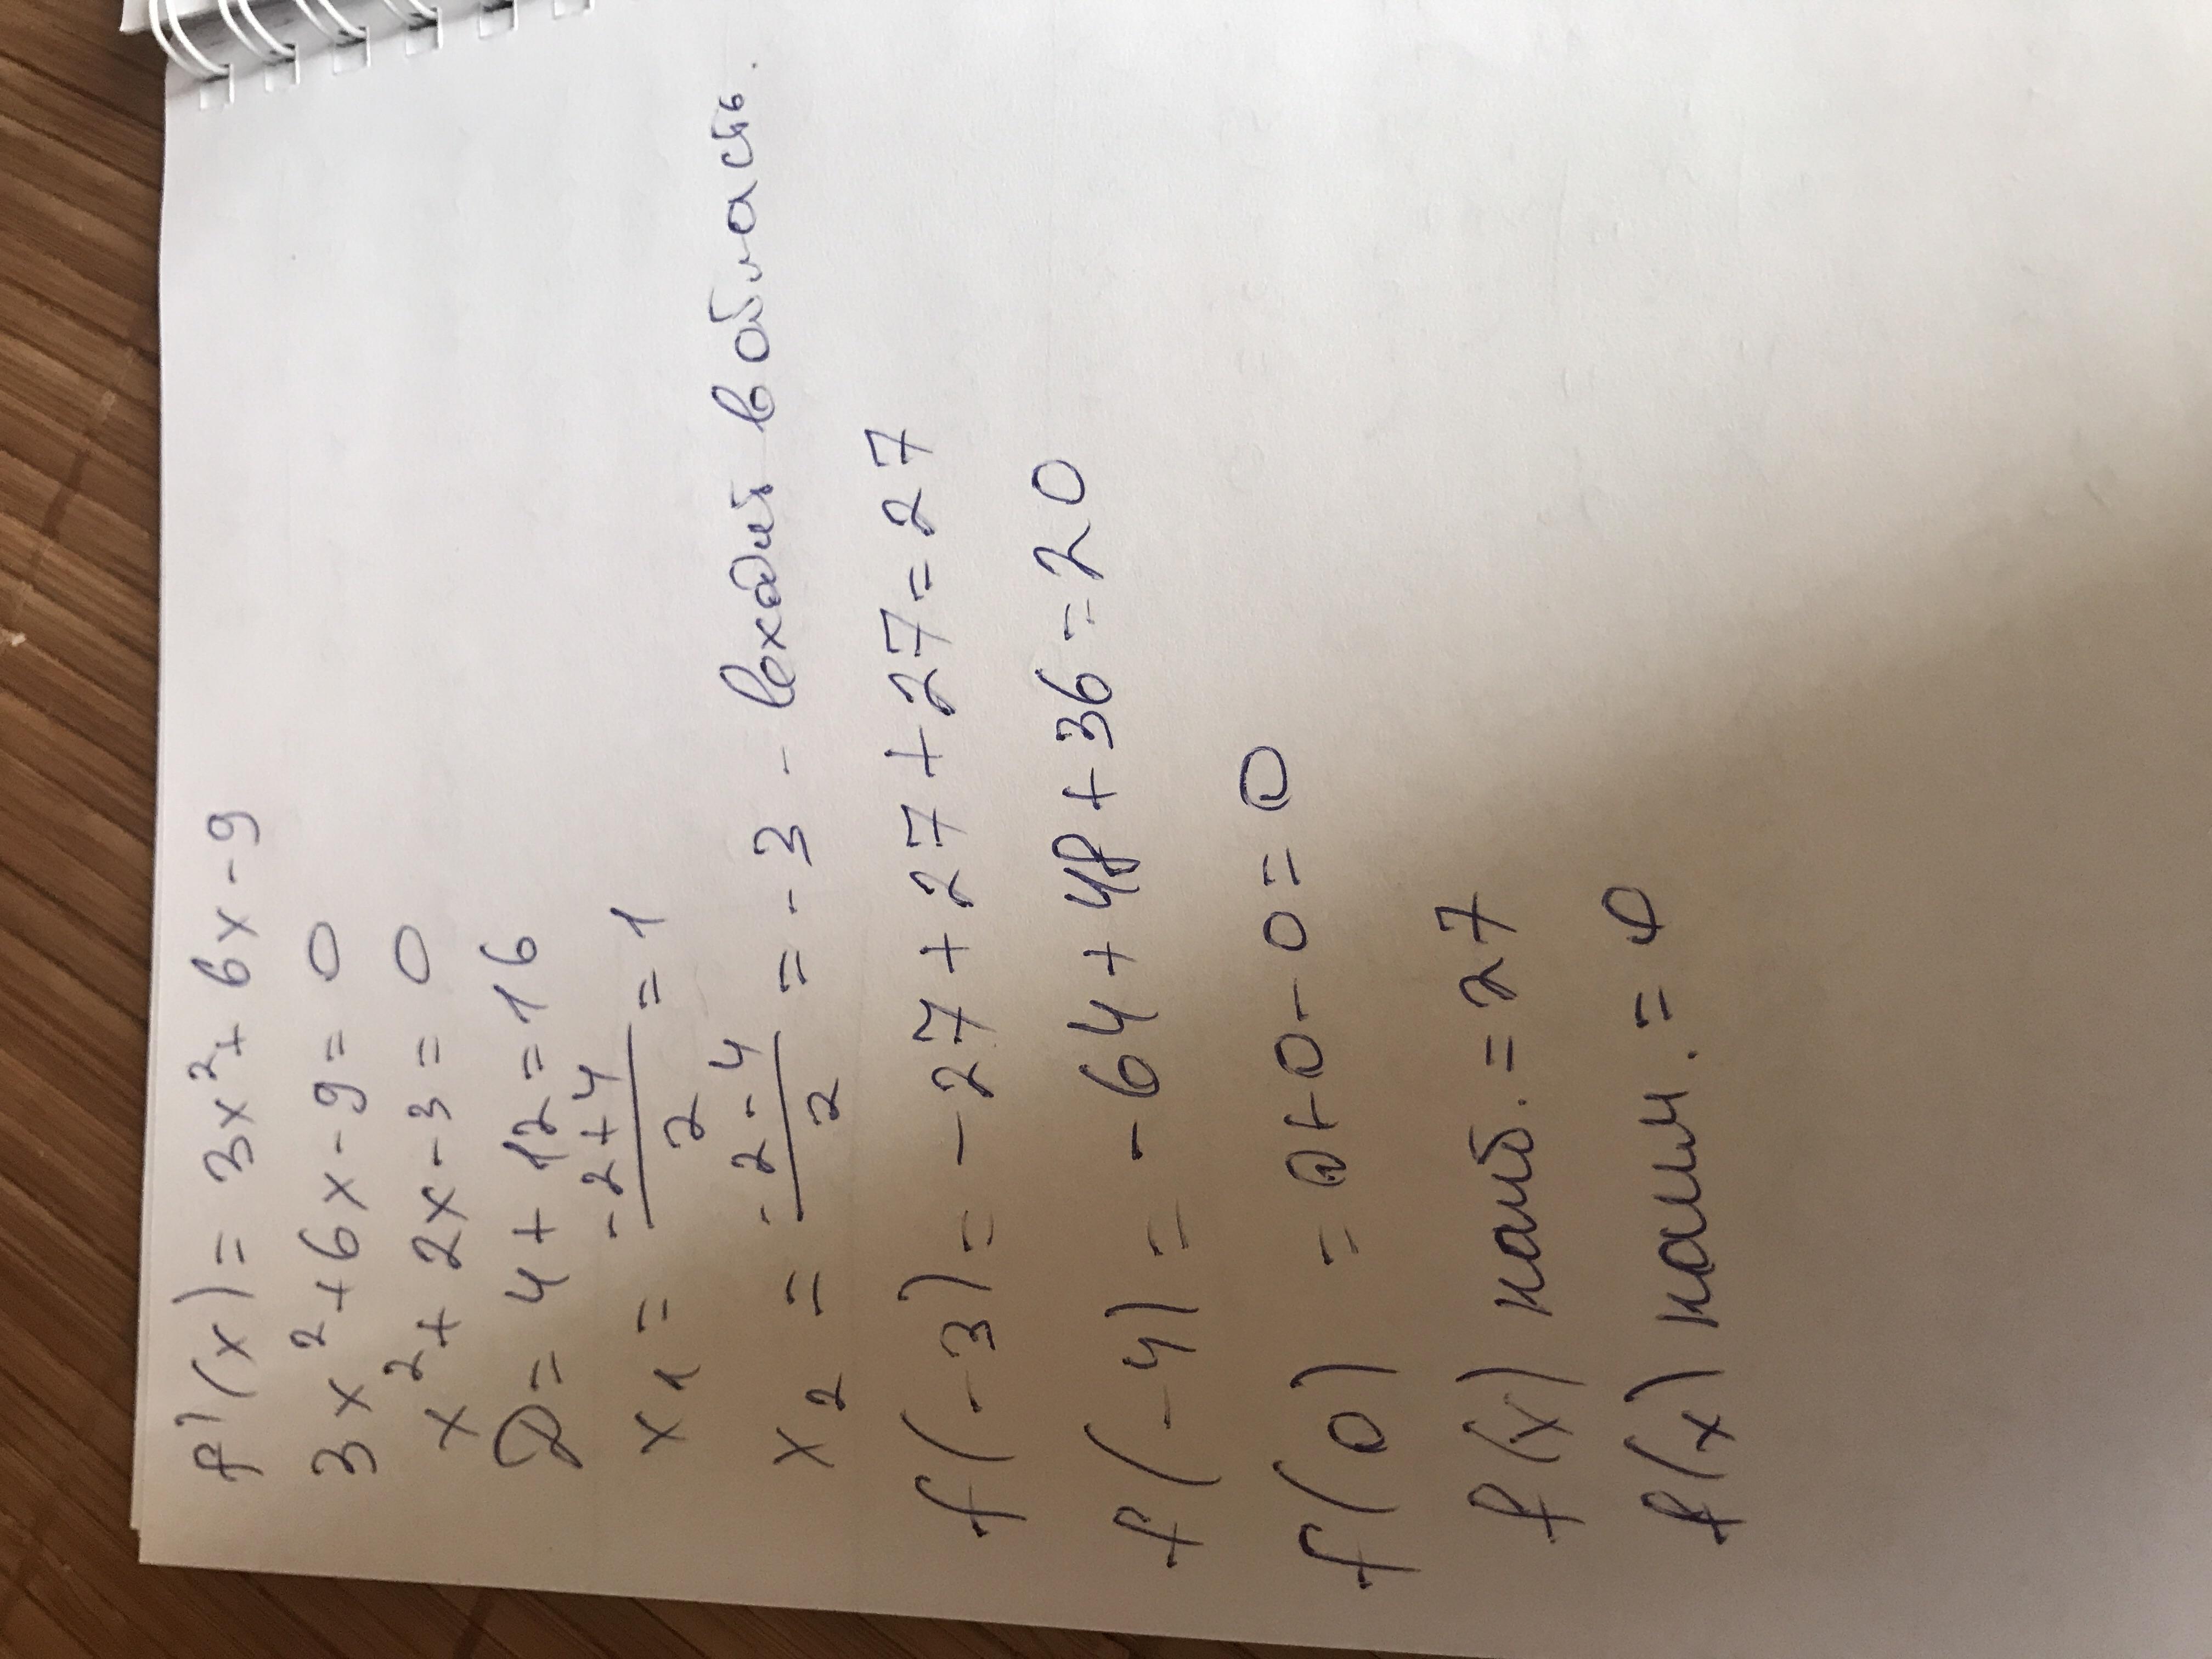 f'(x) = 3x² + 6x - 9
3x² + 6x - 9 = 0
x² + 2x - 3 = 0
D = 4 + 12 = 16
x₁ = (-2+4)/2 = 1
x₂ = (-2-4)/2 = -3 - входит в область.
f(-3) = -27 + 27 + 27 = 27
f(-4) = -64 + 48 + 36 = 20
f(0) = 0+0-0 = 0
f(x) наиб. = 27
f(x) наим. = 0